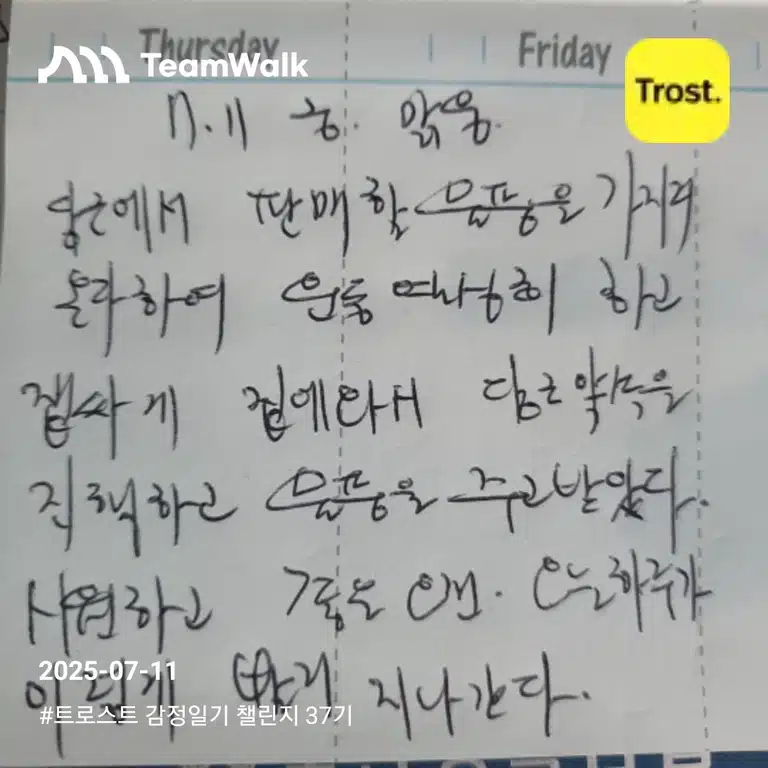 Thursday Friday
TeamWalk
Trost.
7.11 금. 맑음.
당근에서 판매할 물품을 가지러
올라하여 운동 열심히 하고
잽싸게 집에와서 당근약속을
하고 물품을 주고받았다.
시원하고 오늘하루가
2025-07-11
이렇게 빨리 지나간다.
#트로스트 감정일기 챌린지 37기